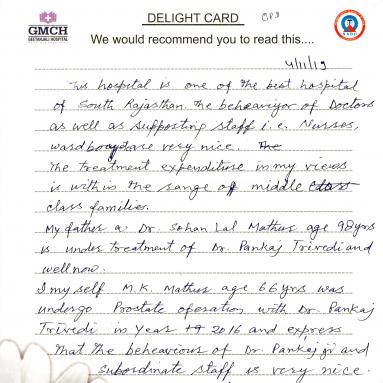 DELIGHT CARD
OPJ
GMCH
GEETANJALI HOSPITAL
NABH
We would recommend you to read this....
4/11/19
This hospital is one of the best hospital
of South Rajasthan. The behaeviyor of Doctors
as well as supporting staff i.e. Nurses,
ward boys are very nice. The
The treatment expenditure in my views
is within the range of middle class
class families.
My father a Dr. Sohan Lal Mathur age 98 yrs
is under treatment of Dr. Pankaj Trivedi and
well now.
I my self M.K. Mathur age 66 yrs was
undergo Prostate operation with Dr. Pankaj
Trivedi in Year 2016 and express
that the beheaviour of Dr. Pankaj ji and
subordinate staff is very nice.